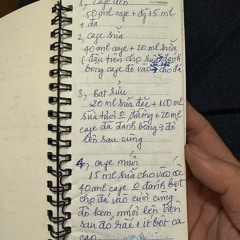 1, Cafe đen
50ml cafe + đg 15ml
+ đá
2, Cafe sữa
40ml cafe + 20ml sữa
bông cafe đổ vào → cho đá
3, Bạt sửu
20 ml sữa đặc + 100ml
sữa tươi ko đường + 20ml
cafe đá đánh bông → đổ
lên sau cùng
4, cafe muối
15 ml sữa cho vào cốc
40ml cafe ko đánh bọt
cho đá vào cuối cùng
đổ kem muối lên trên
sau đó rắc 1 ít bột ca
cao